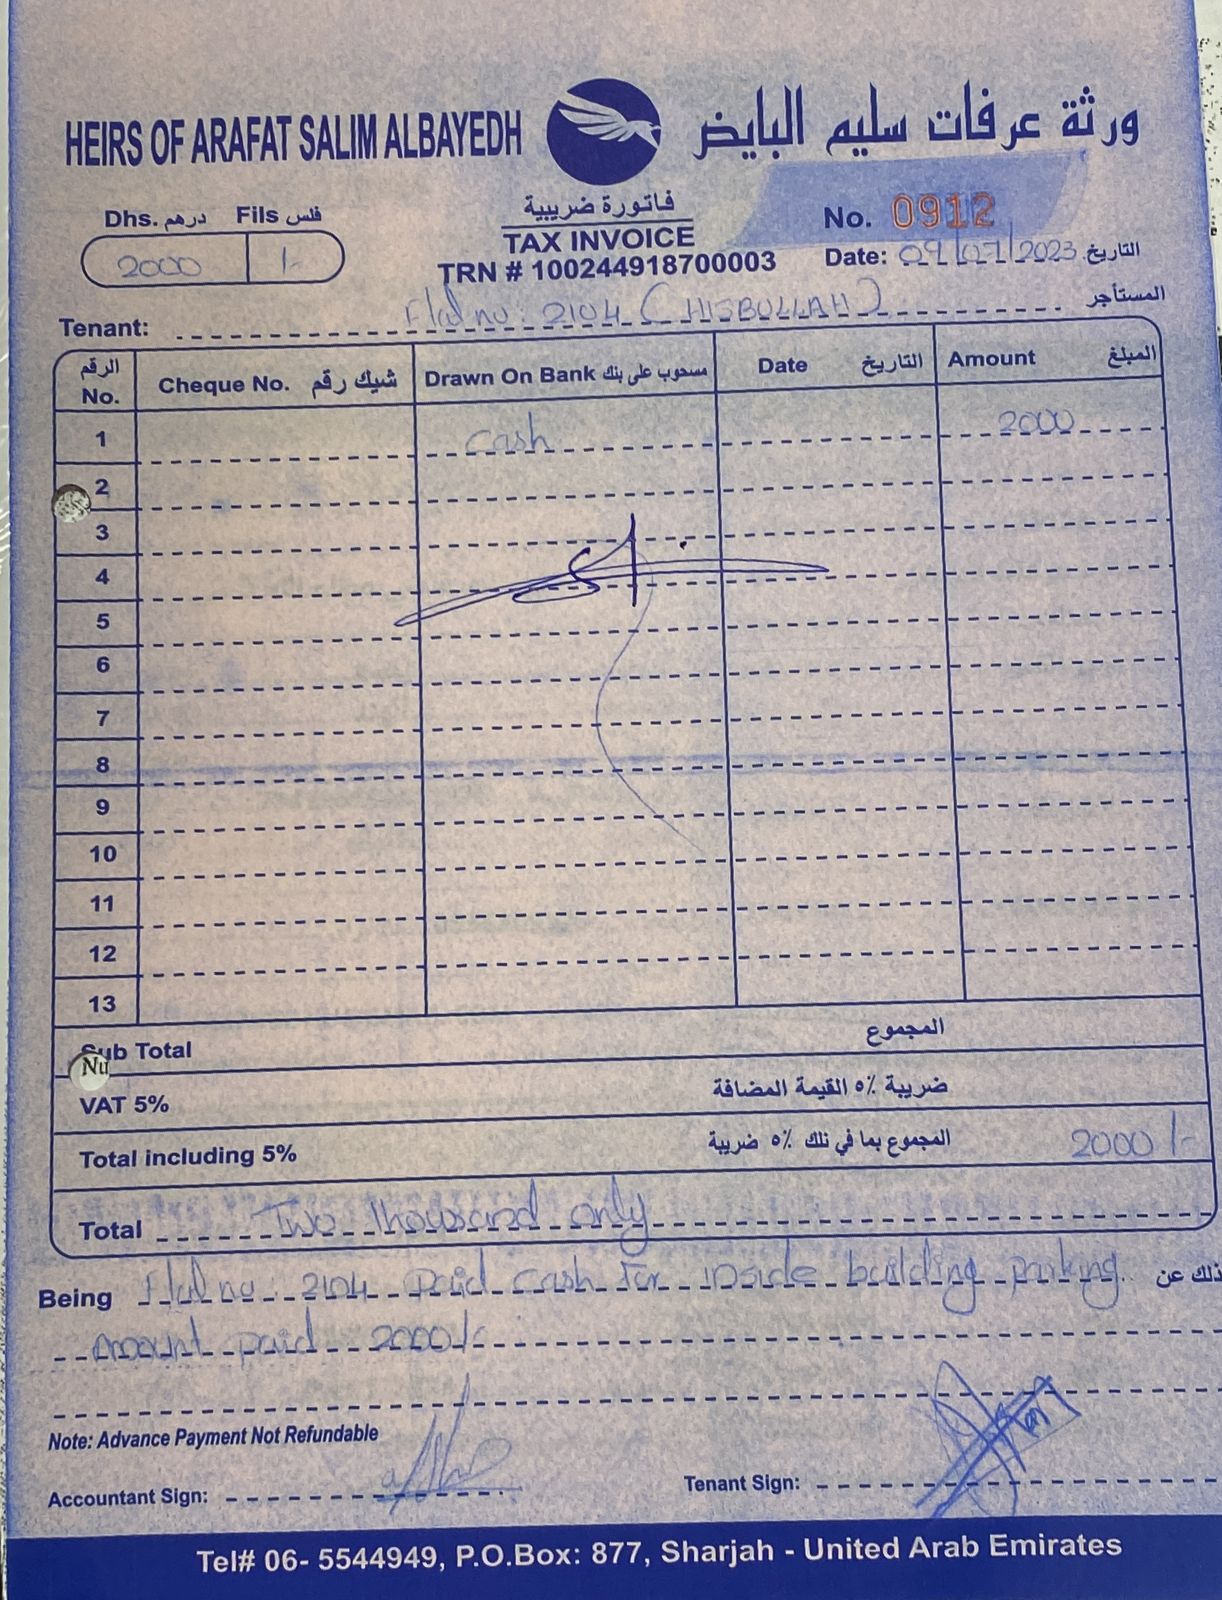 HEIRS OF ARAFAT SALIM ALBAYEDH ورثة عرفات سليم البايض
Dhs. درهم Fils فلس
2000 /-
فاتورة ضريبية
TAX INVOICE
TRN # 100244918700003
No. 0912
Date: 09/07/2023 التاريخ
Tenant: Flat no: 2104 (HISBULLAH) المستأجر
الرقم No. Cheque No. شيك رقم Drawn On Bank مسحوب على بنك Date التاريخ Amount المبلغ
1 Cash 2000
2
3
4
5
6
7
8
9
10
11
12
13
Sub Total المجموع
Nu
VAT 5% ضريبة ٥٪ القيمة المضافة
Total including 5% المجموع بما في ذلك ٥٪ ضريبة 2000/-
Total Two thousand only
Being Flat no: 2104 Paid Cash For inside building parking. ذلك عن
amount paid 2000/-
Note: Advance Payment Not Refundable
Accountant Sign: Tenant Sign:
Tel# 06- 5544949, P.O.Box: 877, Sharjah - United Arab Emirates